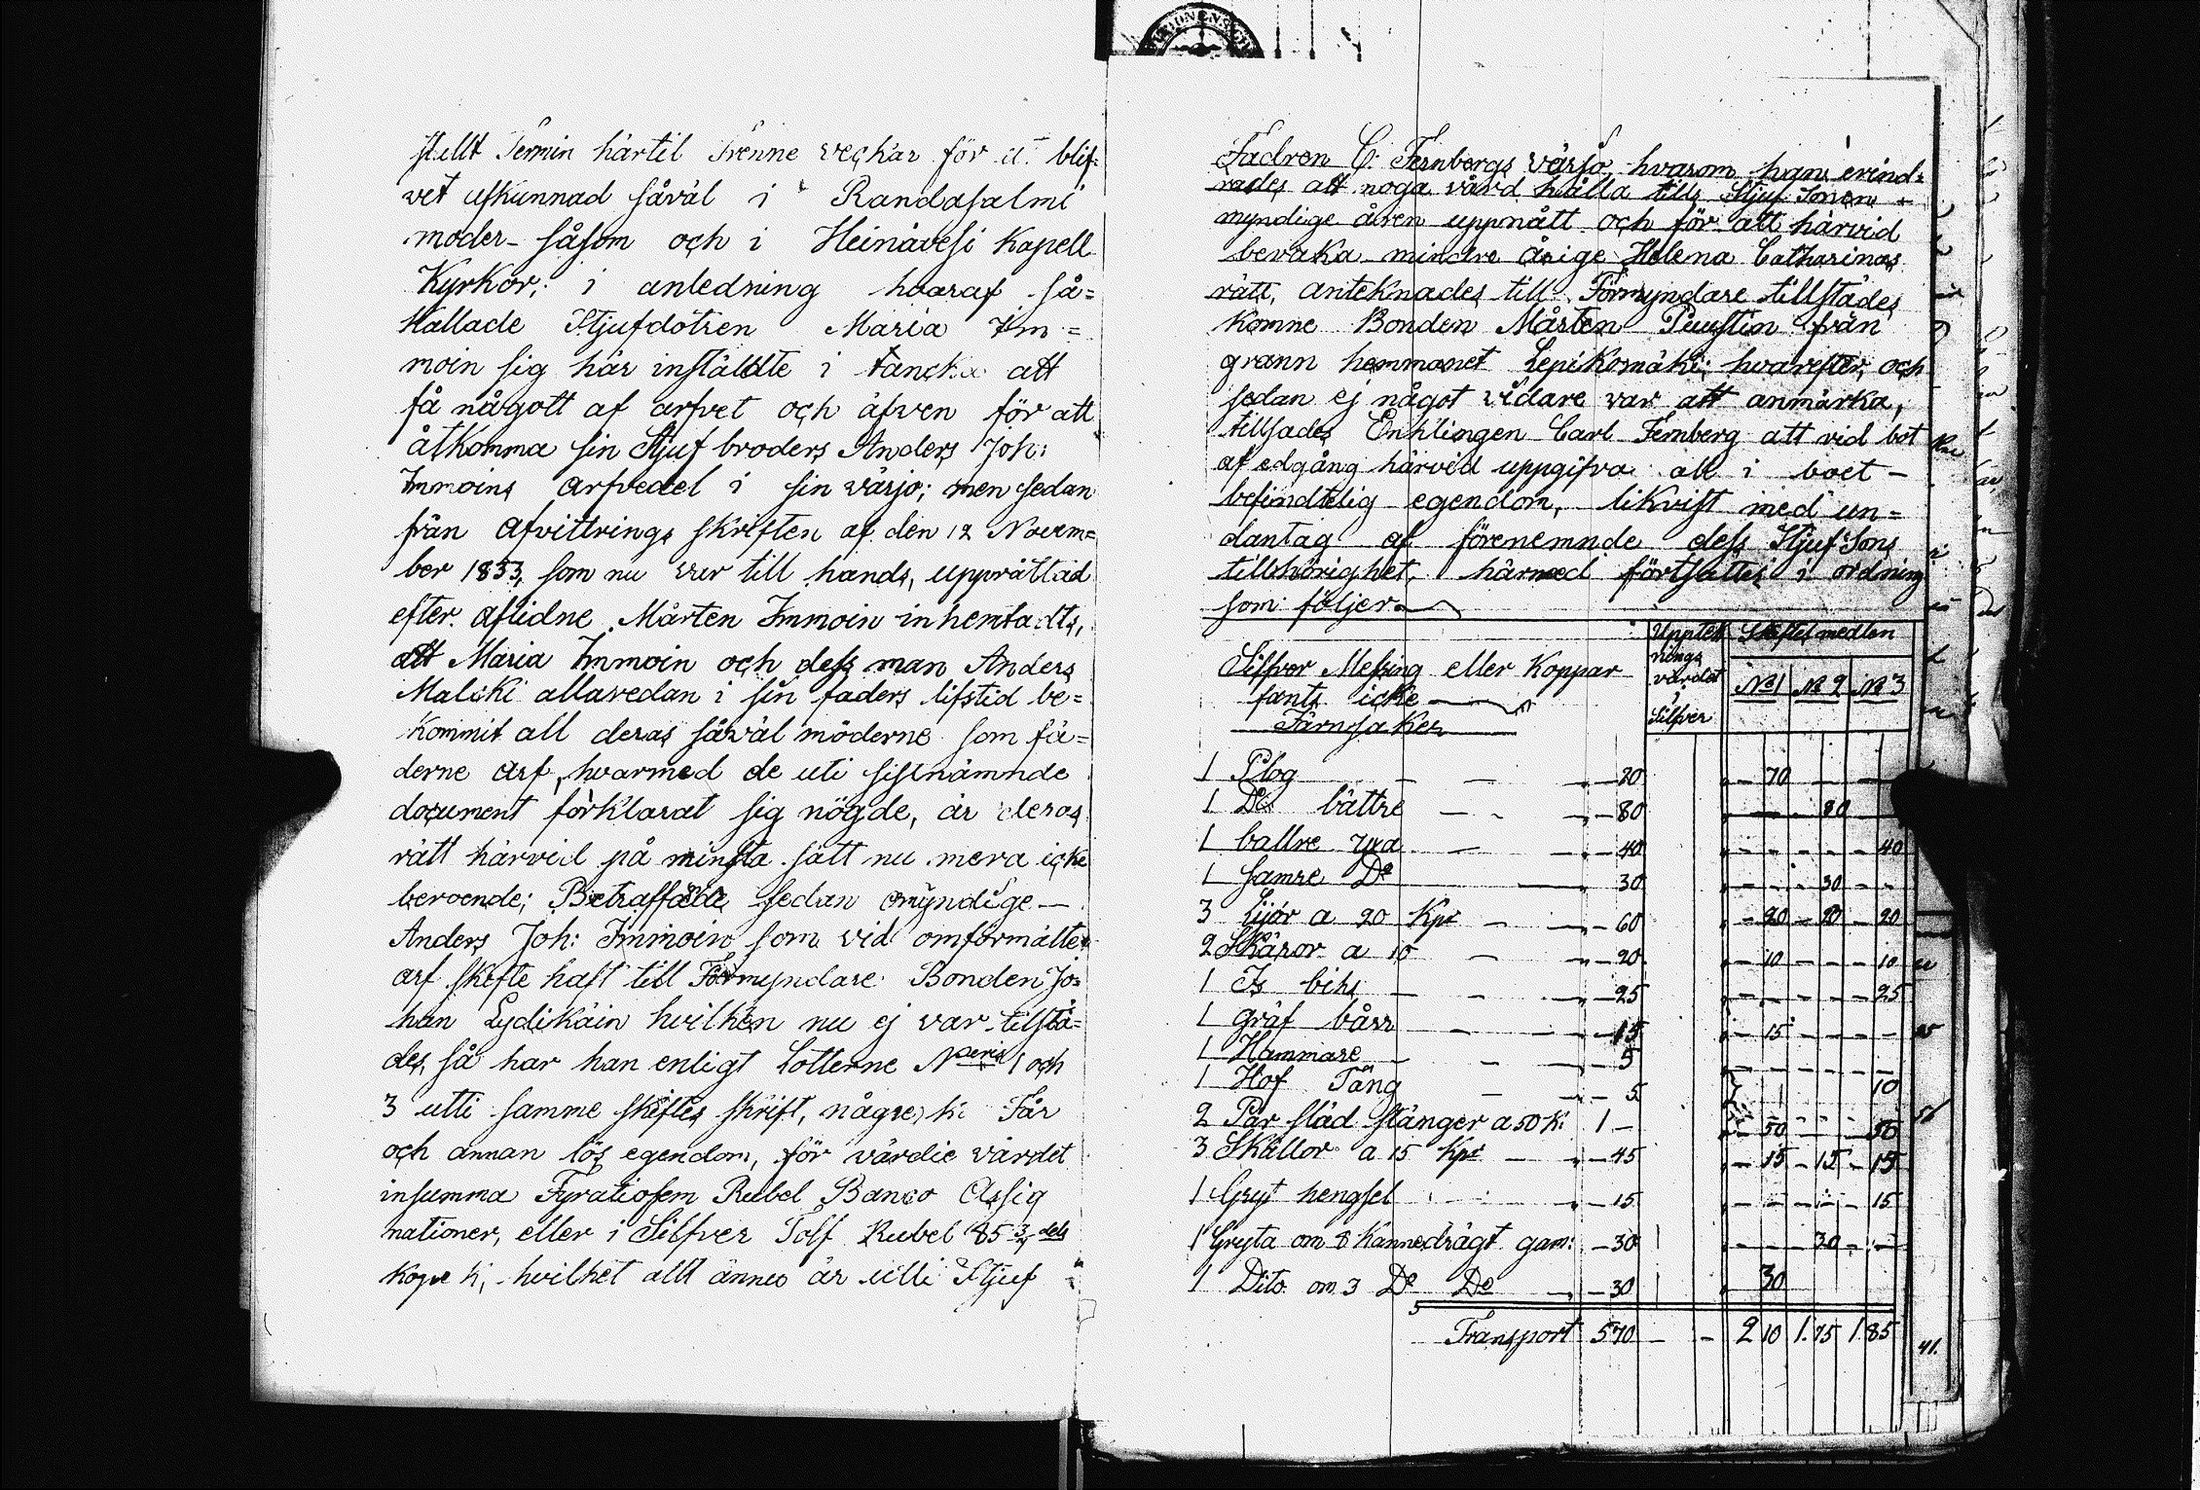 stellt Termin härtil Trenne veckar för ut blif=
vet afkunnad såväl i Randasalmi
moder- såsom och i Heinävesi Kapell
Kyrkor; i anledning hvaraf så=
Kallade Stjufdötren Maria Im=
moin sig här instäldte i tancka att
få någott af arfvet och äfven för att
åtkomma sin Stjuf broders Anders Joh:
Immoins arfvedel i sin värjo; men sedan
från Afvittrings skriften af den 12 Novem=
ber 1833, som nu var till hands, upprättad
efter aflidne Mårten Immoin inhemtadts,
att Maria Immoin och dess man Anders
Malski allaredan i sin faders lifstid be=
kommit all deras såväl möderne som fä=
derne arf, hvarmed de uti sistnämnde
document förklarat sig nögde, är deras
rätt härvid på minsta sätt nu mera icke
beroende; Beträffande sedan omyndige —
Anders Joh: Immoin som vid omförmälte
arf skifte haft till Förmyndare Bonden Jo=
han Lydikäin hvilken nu ej var tilstä=
des, så har han enligt Lotterne Neris 1 och
3 utti samme skiftes skrift, några k: Får
och annan lös egendom, för värdie värdet
insumma Fyratiofem Rubel Banco Assig
nationer, eller i Silfver Tolf Rubel 85 3/ dels
Kopek, hvilket allt ännu är utti Stjuf
Fadren C: Fernbergs värjo, hvarom han erind=
rades att noga vård hålla tills Stjuf Sonen
myndige åren uppnått och för att härvid
bevaka mindre årige Helena Catharinas
rätt, anteknades till Förmyndare tillstädes
Komne Bonden Mårten Puustin från
grann hemmanet Lepikomäki; hvarefter och
sedan ej något vidare var att anmärka,
tillsades Enklingen Carl Fernberg att vid bot
af edgång härvid uppgifva all i boet —
befindtelig egendom, likvist med un=
dantag af förenemnde dess Stjuf Sons
tillhörighet, härmed förtsattes i ordning
som följer
Silfver Messing eller Koppar
fants icke
Järnsaker
Upptek
nings
värdet
i
Silfver
Skiftes medlen
No 1 No 2 No 3
1 Plog — — — 70 — 70 — —
1 Do bättre — — — 80 — — 80
1 battre yxa — — 40 — — — 40
1 samre Do — — 30 — — 30 — —
3 Lijor a 20 Kpr — — 60 — 20 — 20 — 20
2 Skäror a 10 — — 20 — 10 — — 10
1 Is bihl — — — 25 — — — 25
1 gräf bårr — — — 15 — 15 — — —
1 Hammare — — — 5
1 Hof Tång — — — 5 10
2 Par släd stänger a 50 K: 1 — — 50 — — 50
3 Skällor a 15 Kpr — — 45 — 15 — 15 — 15
1 Gryt hengsel — 15 — — — 15
1 Gryta om 8 Kannedrägt gam: — 30 — — 30 — —
1 Dito om 3 Do Do — 30 30
Transport 5 70 — — 2 10 1.75 1.85